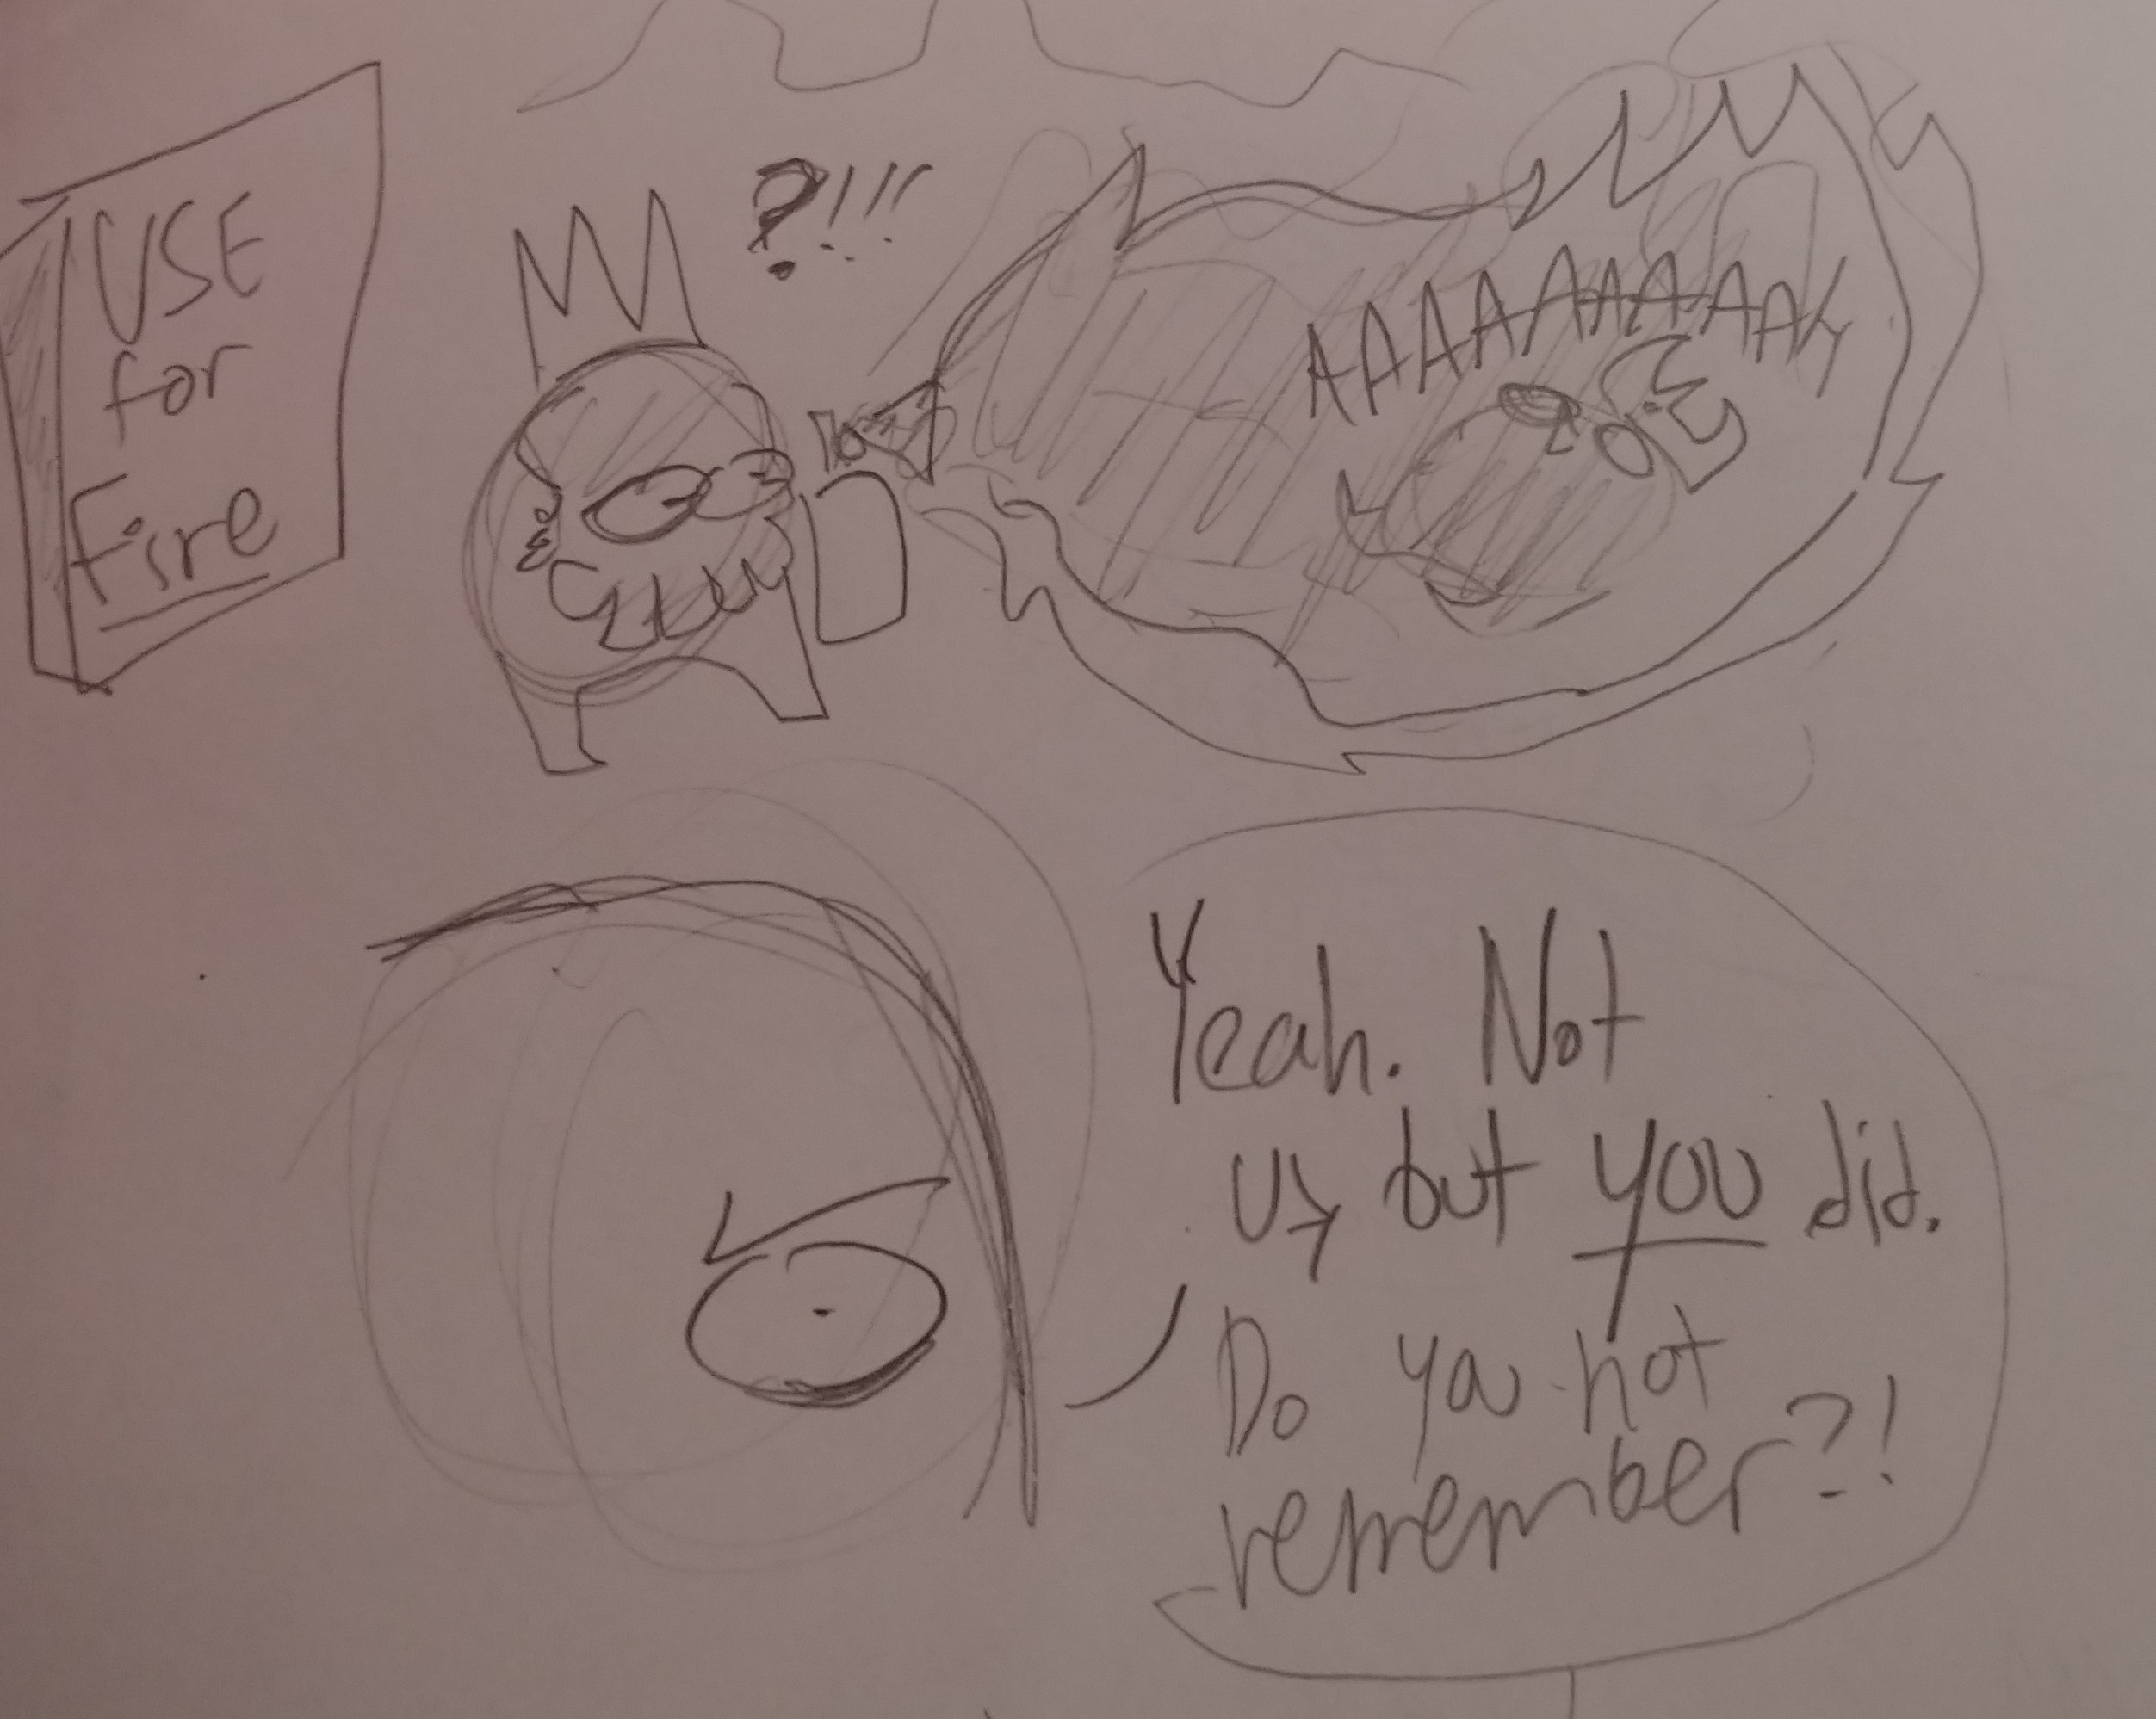 USE
for
Fire
?!!!
AAAAAAAAAAA
Yeah. Not
us but you did.
Do you not
remember?!